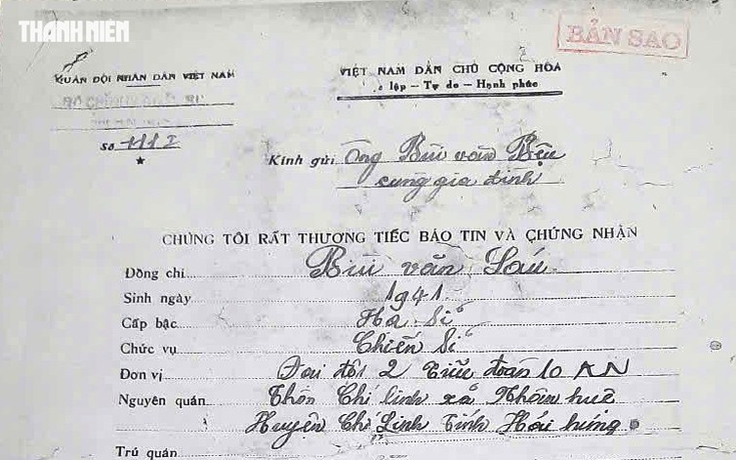 THANH NIÊN
BẢN SAO
QUÂN ĐỘI NHÂN DÂN VIỆT NAM
VIỆT NAM DÂN CHỦ CỘNG HÒA
lập — Tự do — Hạnh phúc
Số 1112
Kính gửi Ông Bùi văn Bệu
cùng gia đình
CHÚNG TÔI RẤT THƯƠNG TIẾC BÁO TIN VÀ CHỨNG NHẬN
Đồng chí Bùi văn Sáu
Sinh ngày 1941
Cấp bậc Hạ Sĩ
Chức vụ Chiến Sĩ
Đơn vị Đại đội 2 Tiểu đoàn 10 KN
Nguyên quán Thôn Chí linh xã Nhân huệ
Huyện Chí Linh Tỉnh Hải hưng
Trú quán